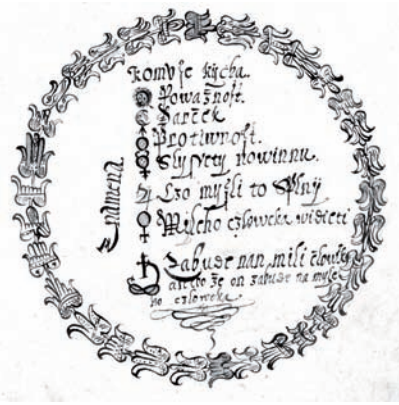 Komu se kycha.
Powažnost.
Darček
Protiwnost.
Slyssety nowinnu.
Czo myſli to Splnij
Mileho człoweka widieti
Zabude nan mili človiek
anebo že on zabude na myleho
człoweka
Znamena.